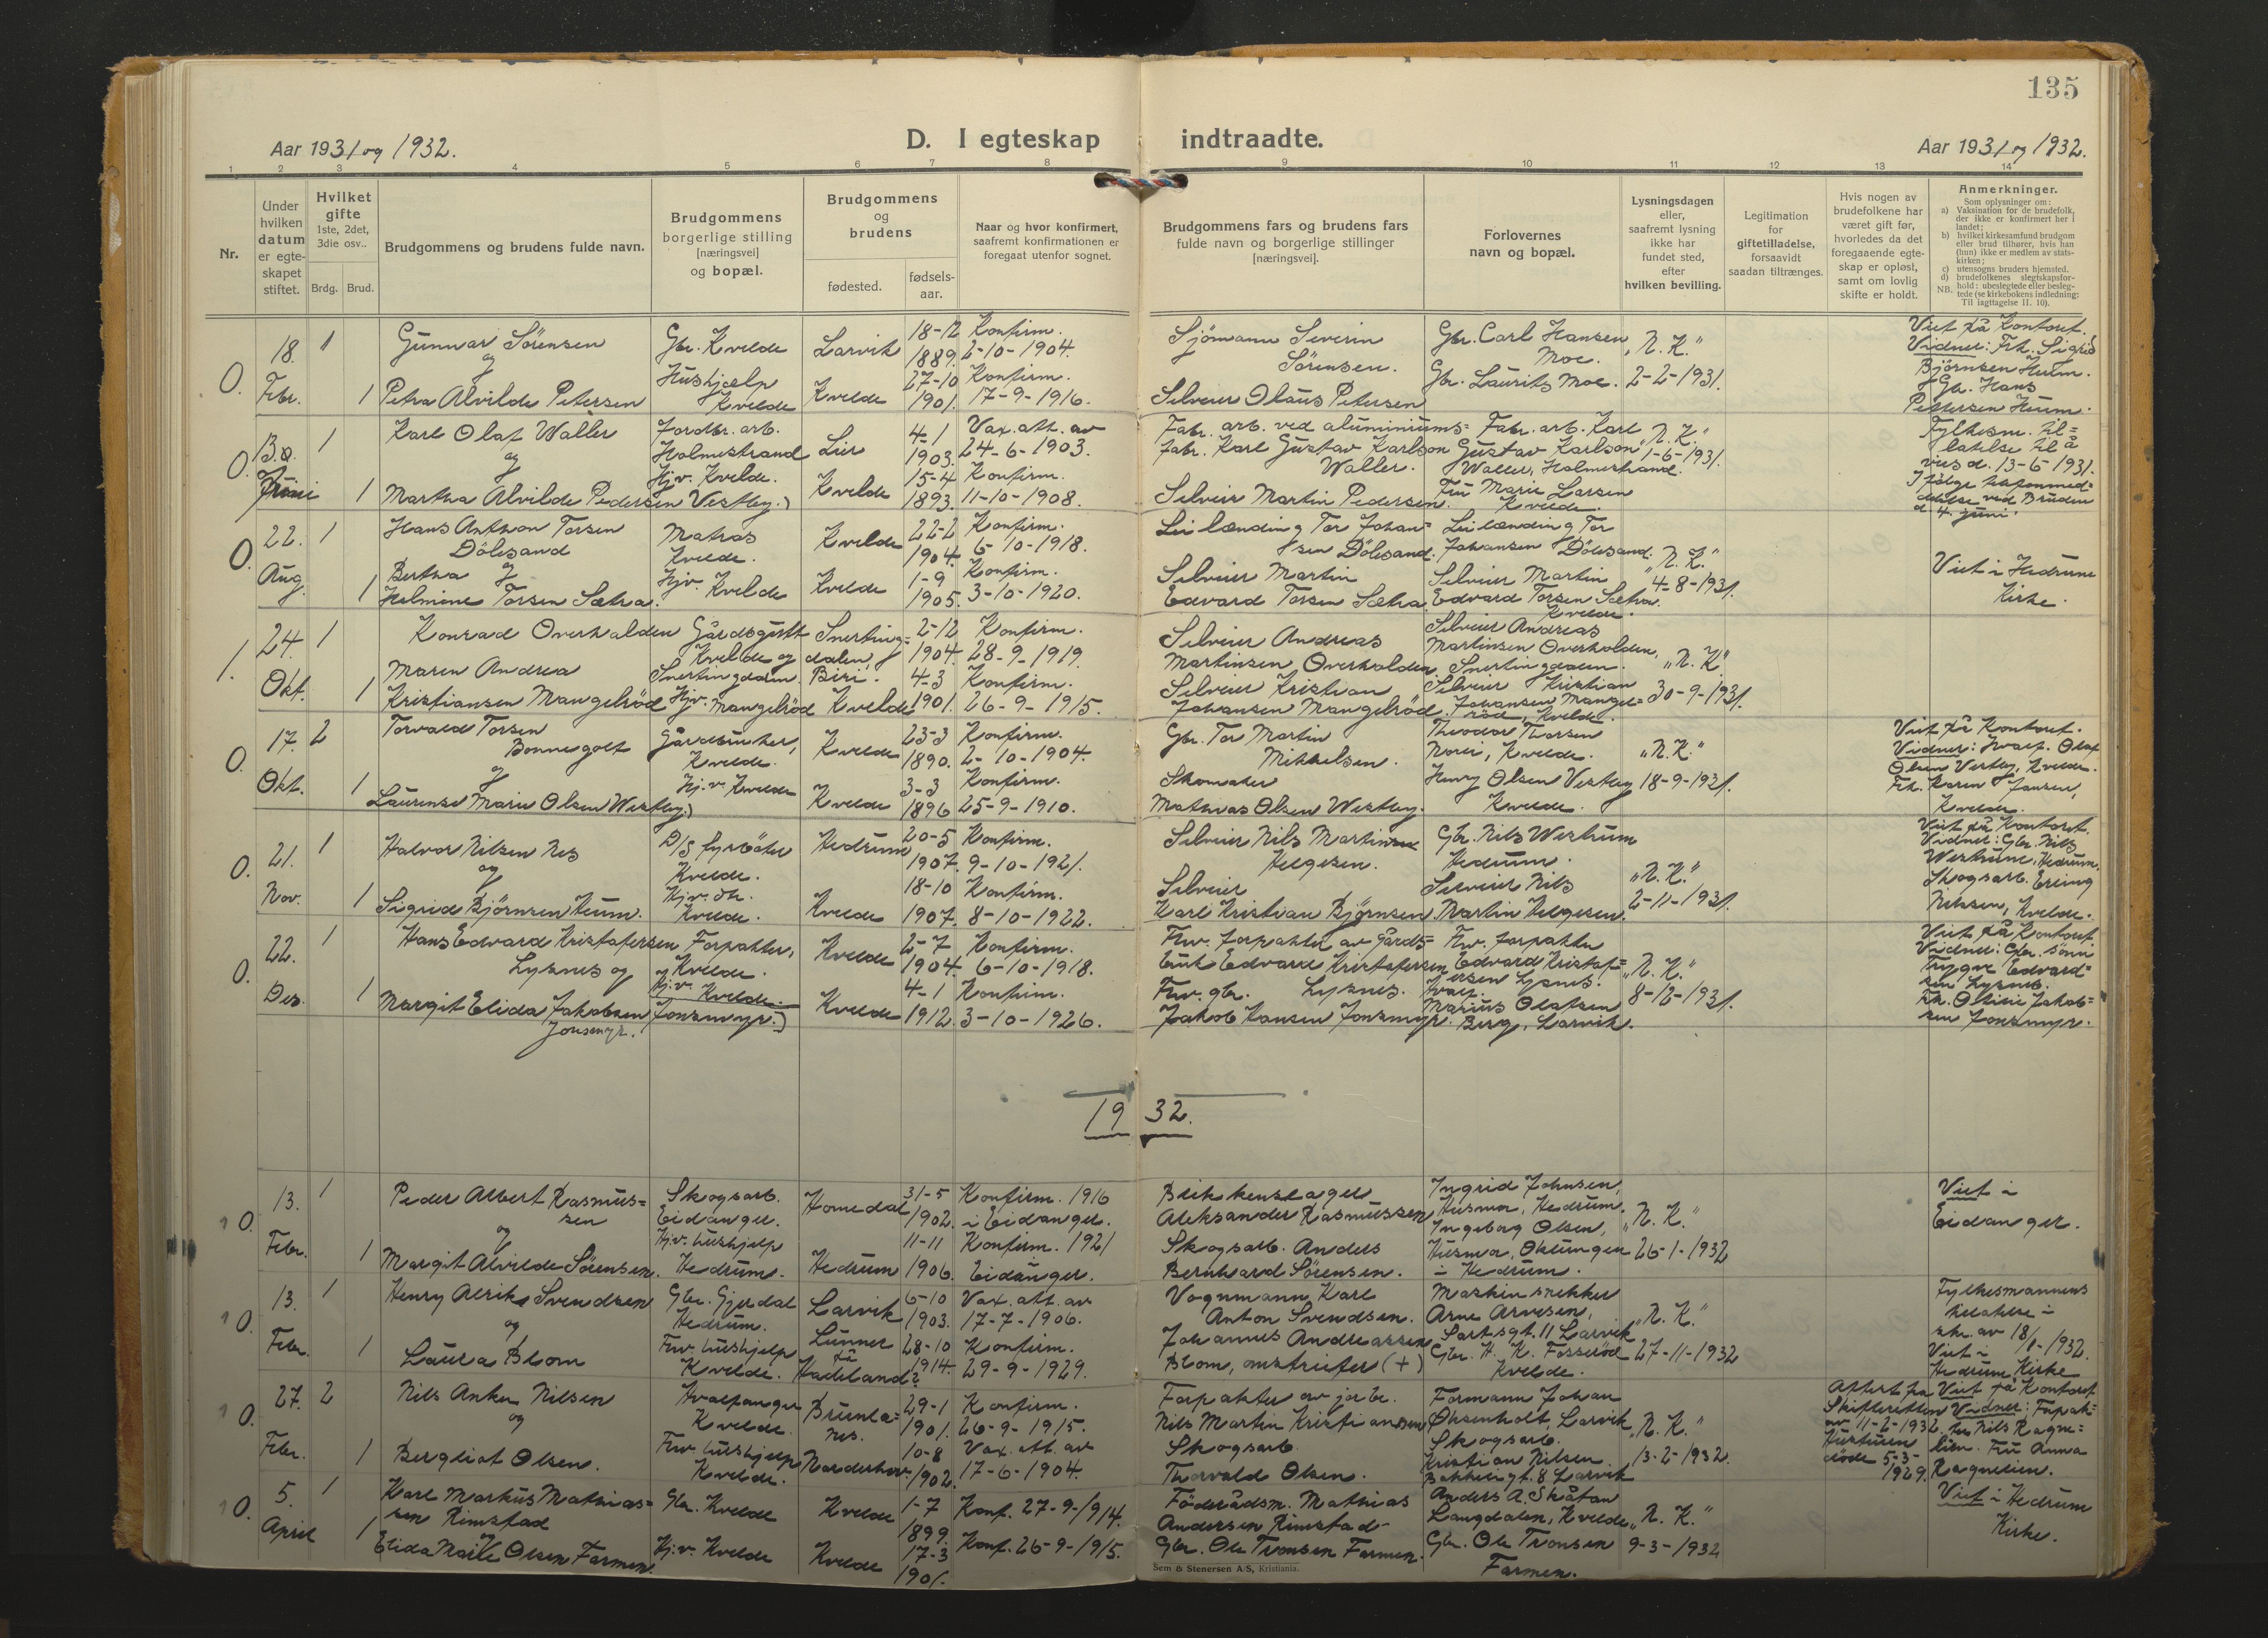 135
Aar 1931 og 1932.
D. I egteskap indtraadte.
Aar 1931 og 1932.
1 2 3 4 5 6 7 8 9 10 11 12 13 14
Nr.
Under
hvilken
datum
er egte-
skapet
stiftet.
Hvilket
gifte
1ste, 2det,
3die osv..
Brdg. Brud.
Brudgommens og brudens fulde navn.
Brudgommens
borgerlige stilling
[næringsvei]
og bopæl.
Brudgommens
og
brudens
fødested.
fødsels-
aar.
Naar og hvor konfirmert,
saafremt konfirmationen er
foregaat utenfor sognet.
Brudgommens fars og brudens fars
fulde navn og borgerlige stillinger
[næringsvei].
Forlovernes
navn og bopæl.
Lysningsdagen
eller,
saafremt lysning
ikke har
fundet sted,
efter
hvilken bevilling.
Legitimation
for
giftetilladelse,
forsaavidt
saadan tiltrænges.
Hvis nogen av
brudefolkene har
været gift før,
hvorledes da det
foregaaende egte-
skap er opløst,
samt om lovlig
skifte er holdt.
Anmerkninger.
Som oplysninger om:
a) Vaksination for de brudefolk,
der ikke er konfirmert her i
landet;
b) hvilket kirkesamfund brudgom
eller brud tilhører, hvis han
(hun) ikke er medlem av stats-
kirken;
c) utensogns bruders hjemsted.
d) brudefolkenes slegtskapsfor-
hold: ubeslegtede eller besleg-
NB. tede (se kirkebokens indledning:
Til iagttagelse II. 10).
0.
18.
Febr.
1
1
Gunnar Sörensen
og
Petra Alvilde Petersen
Gbr. Kvelde
Hushjælp
Kvelde
Larvik
Kvelde
18-12
1889.
27-10
1901.
Konfirm.
2-10-1904.
Konfirm.
17-9-1916.
Sjömann Severin
Sörensen.
Selveier Olaus Petersen
Gbr. Carl Hansen
Moe.
Gbr. Laurits Moe.
"N. K."
2-2-1931.
Viet på Kontoret.
Vidner: Frk. Sigrid
Björnsen Heum.
Gbr. Hans
Pettersen Heum.
0.
Juni
1
1
Karl Olaf Waller
og
Martha Alvilde Pedersen Vestby.)
Jordbr. arb.
Holmestrand
Hj.v. Kvelde.
Lier
Kvelde
4-1
1903.
15-4
1893.
Vax. att. av
24-6-1903.
Konfirm.
11-10-1908.
Fabr. arb. ved aluminiums=
fabr. Karl Gustav Karlson
Waller.
Selveier Martin Pedersen.
Fabr. arb. Karl
Gustav Karlson
Waller, Holmestrand.
Fru Marie Larsen
Kvelde.
"N. K."
1-6-1931.
Fylkesm. til=
latelse til å
vies d. 13-6-1931.
d. 4. juni.
0.
22.
Aug.
1
1
Hans Anthon Torsen
Dölesand
og
Bertha
Helmine Torsen Sætra.
Matros
Kvelde.
Hjv. Kvelde
Kvelde
Kvelde
22-2
1904.
1-9
1905.
Konfirm.
6-10-1918.
Konfirm.
3-10-1920.
Leilænding Tor Johan=
sen Dölesand.
Selveier Martin
Edvard Torsen Sætra.
Leilænding Tor
Johansen Dölesand.
Selveier Martin
Edvard Torsen Sætra.
Kvelde.
"N. K."
4-8-1931.
Viet i Hedrum
Kirke.
1.
24.
Okt.
1
1
Konrad Overhalden
Maren Andrea
Kristiansen Mangelröd
Gårdsgutt
Kvelde og
Snertingdalen.
Hjv. Mangelröd
Snerting=
dalen,
Biri.
Kvelde
2-12
1904.
4-3
1901.
Konfirm.
28-9-1919.
Konfirm.
26-9-1915.
Selveier Andreas
Martinsen Overhalden.
Selveier Kristian
Johansen Mangelröd.
Selveier Andreas
Martinsen Overhalden,
Snertingdalen.
Selveier Kristian
Johansen Mangel=
röd, Kvelde.
"N. K."
30-9-1931.
0.
17.
Okt.
2
1
Torvald Torsen
Bonnegolt
og
Laurense Marie Olsen Westby.)
Gårdbruker,
Kvelde.
Hj.v. Kvelde
Kvelde
Kvelde
23-3
1890.
3-3
1896
Konfirm.
2-10-1904.
Konfirm.
25-9-1910.
Gbr. Tor Martin
Mikkelsen.
Skomaker
Mathias Olsen Westby.
Theodor Thorsen
Moe, Kvelde.
Henry Olsen Vestby
Kvelde.
"N. K."
18-9-1931.
Viet på Kontoret.
Vidner: Hvalf. Olaf
Olsen Vestby, Kvelde.
Frk. Karen Jansen,
Kvelde.
0.
21.
Nov.
1
1
Halvor Nilsen Nes
og
Sigrid Bjørnsen Heum.
D/S fyrböter
Kvelde.
Hj.v. dtr.
Kvelde.
Hedrum
Kvelde
20-5
1907.
18-10
1907.
Konfirm.
9-10-1921.
Konfirm.
8-10-1922.
Selveier Nils Martinsen
Helgesen.
Selveier
Karl Kristian Bjørnsen
Gbr. Nils Westrum
Hedrum.
Selveier Nils
Martin Helgesen.
"N. K."
2-11-1931.
Viet på Kontoret.
Vidner: Gbr. Nils
Westrum, Hedrum.
Skogsarb. Erling
Nilssen, Kvelde.
0.
22.
Des.
1
1
Hans Edvard Kristofersen
Lysnes og
Margit Elida Jakobsen Jonsmyr.)
Jonsmyr.
Forpakter,
Kvelde.
Hj.v. Kvelde.
Kvelde
Kvelde
2-7
1904.
4-1
1912.
Konfirm.
6-10-1918.
Konfirm.
3-10-1926.
Fhv. forpakter av Gårds=
bruk Edvard Kristofersen
Lysnes.
Fhv. gbr.
Jakob Hansen Jonsmyr.
Fhv. forpakter
Edvard Kristof=
ersen Lysnes.
Hvalf.
Marius Olafsen
Berg, Larvik.
"N. K."
8-12-1931.
Viet på Kontoret
Vidner: Gbr. sönn
Trygve Edvard=
sen Lysnes.
Frk. Otilie Jakob=
sen Jonsmyr.
1932.
0.
13.
Febr.
1
1
Peder Albert Rasmus=
sen
og
Margit Alvilde Sörensen.
Skogsarb.
Eidanger.
Hj.v. hushjelp
Hedrum.
Homedal
Hedrum
31-5
1902.
11-11
1906.
Konfirm. 1916
i Eidanger.
Konfirm. 1921
Eidanger.
Blikkenslager
Aleksander Rasmussen
Skogsarb. Anders
Bernhard Sörensen.
Ingrid Johnsen,
Husmor, Hedrum.
Ingeborg Olsen,
Husmor, Oklungen
i Hedrum.
"N. K."
26-1-1932
Viet i
Eidanger.
0.
13.
Febr.
1
1
Henry Alriks Svendsen
og
Laura Blom
Gbr. Gjerdal
Hedrum.
Fhv. hushjelp
Kvelde.
Larvik
Lunner
på
Hadeland?
6-10
1903.
28-10
1914.
Vax. att. av
17-7-1906.
Konfirm.
29-9-1929.
Vognmann Karl
Anton Svendsen.
Johannes Andreassen
Blom, anstreifer (+)
Maskinsnekker
Arne Arvesen,
11 Larvik
Gbr. H. K. Fosseröd
Kvelde.
"N. K."
27-11-1932
Fylkesmannens
tilatelse i
skr. av 18/1-1932.
Viet i
Hedrum Kirke
0.
27.
Febr.
2
1
Nils Anker Nilsen
og
Bergliot Olsen.
Hvalfanger
Kvelde.
Fhv. hushjelp
Kvelde.
Brunla=
nes.
Norderhov
29-1
1901.
10-8
1902.
Konfirm.
26-9-1915.
Vax. att. av
17-6-1904.
Forpakter av jorbr.
Nils Martin Kristiansen
Skogsarb.
Thorvald Olsen.
Formann Johan
Oksenholt, Larvik
Skogsarb.
Kristian Nilsen.
Bakkeligt. 8 Larvik
"N. K."
13-2-1932.
Attest fra
Skifteretten
av 11-2-1932.
Hustruen
döde 5-3-
1929.
Viet på Kontoret
Vidner: Forpak=
ter Nils Ragne=
lien. Fru Anna
Ragnelien.
0.
5.
April
1
1
Karl Markus Mathias=
sen Rimstad
og
Elida Marie Olsen Farmen.
Gbr. Kvelde
Hj.v. Kvelde
Kvelde
Kvelde
1-7
1899.
17-3
1901.
Konf. 27-9-1914.
Konf. 26-9-1915.
Föderådsm. Mathias
Andersen Rimstad
Gbr. Ole Tronsen Farmen.
Anders A. Skåtan
Langdalen, Kvelde
Gbr. Ole Tronsen
Farmen.
"N. K."
9-3-1932
Viet i Hedrum
Kirke.
Sem & Stenersen A/S, Kristiania.